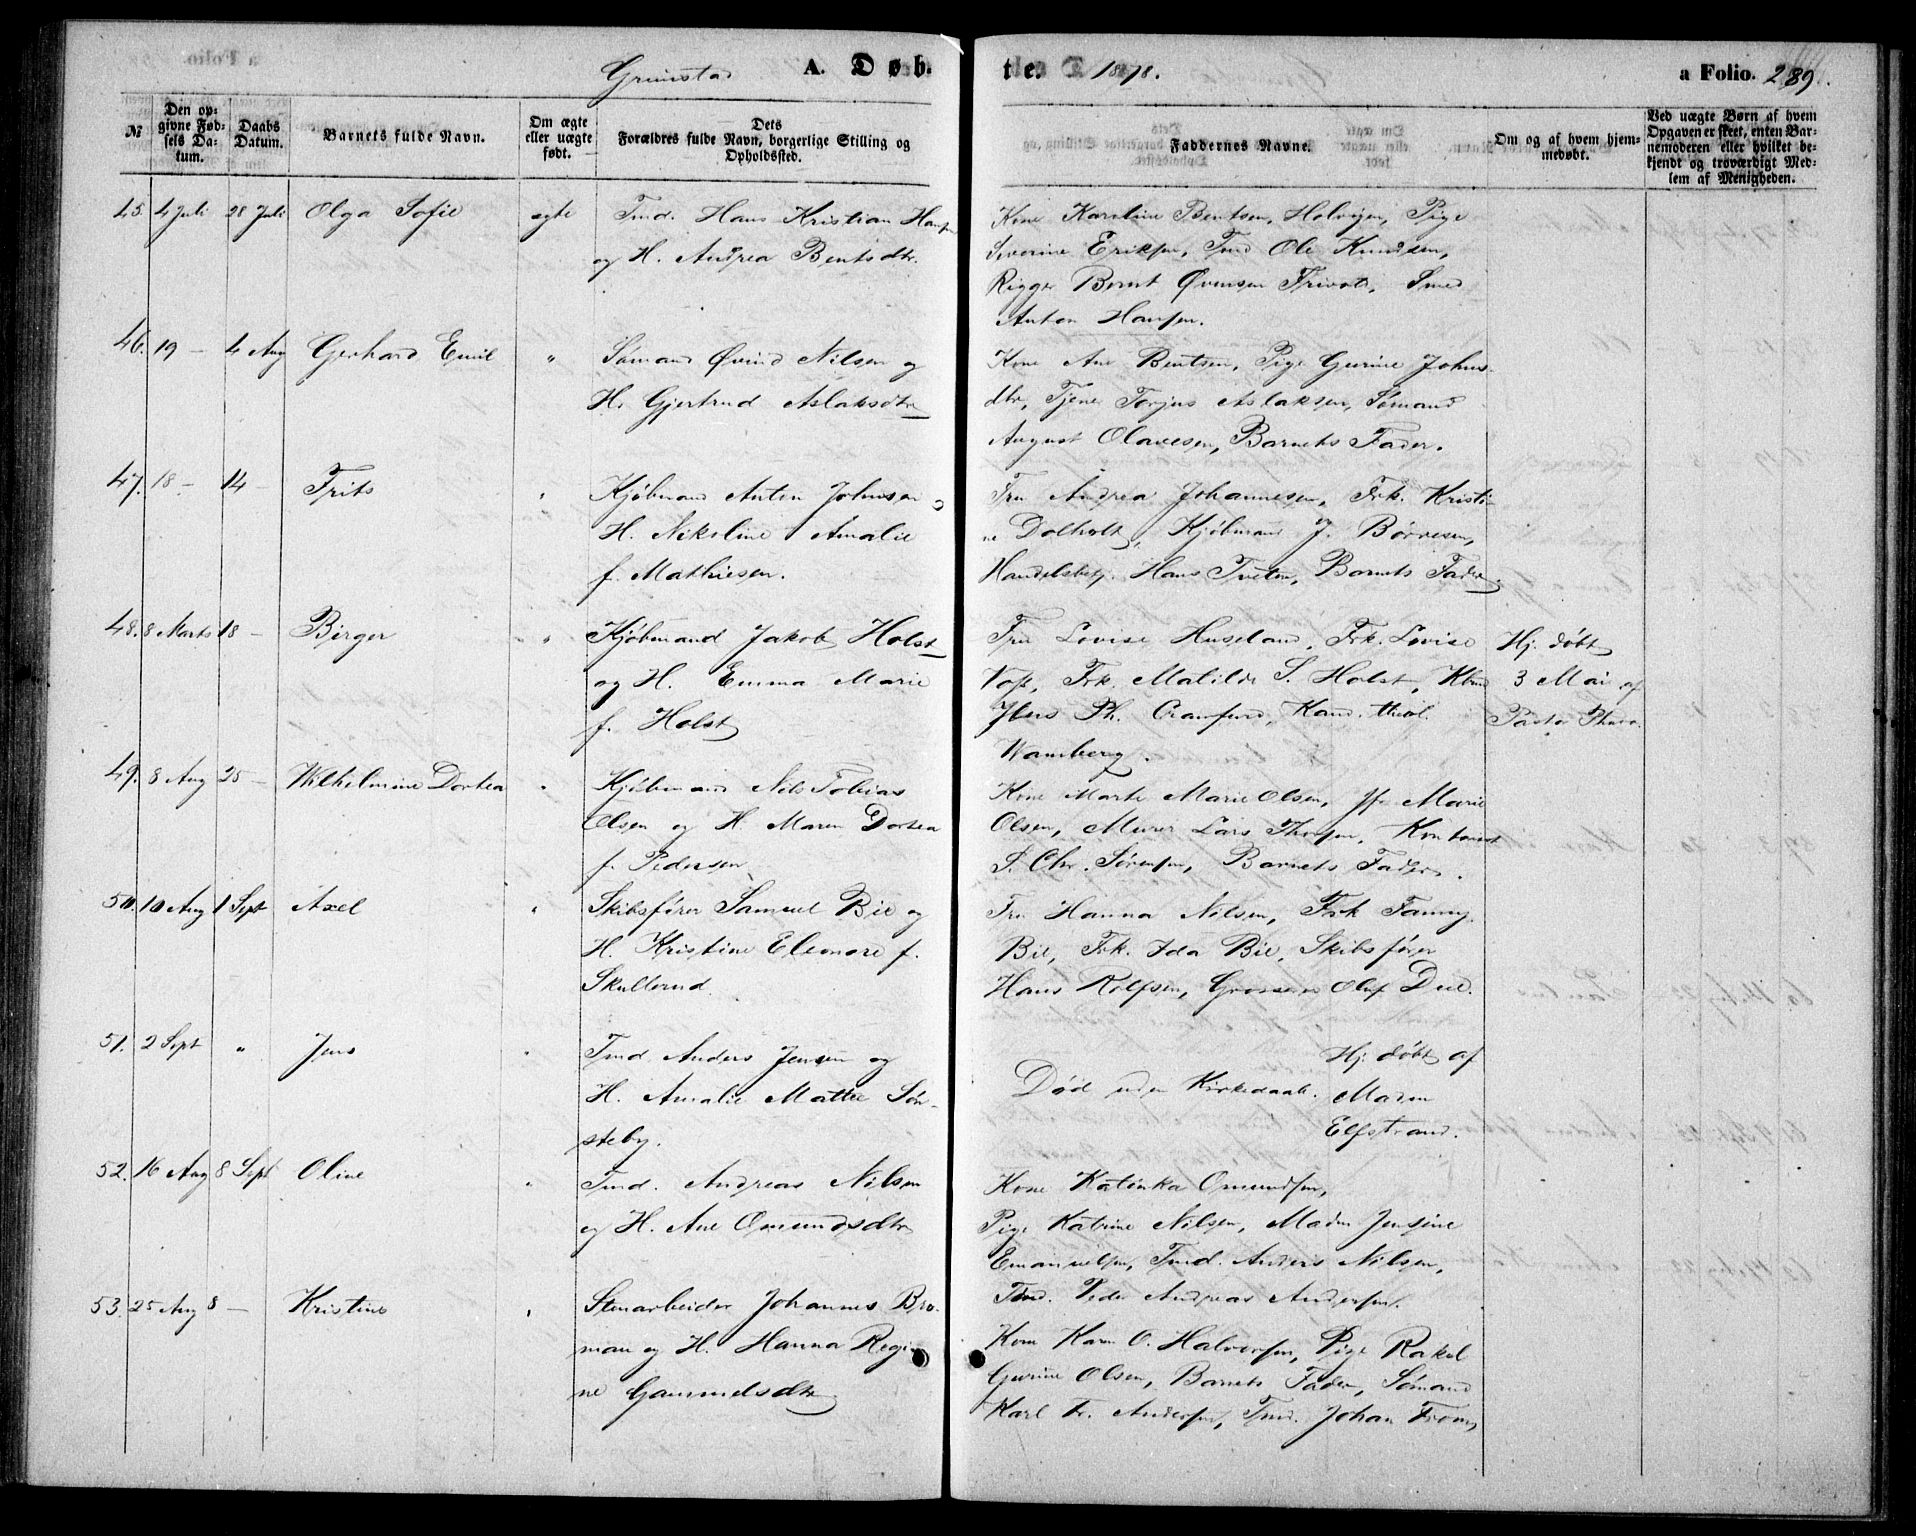 Grimstad A. Døb- te. 1878. a Folio. 289.
№ Den opgivne Fødsels Datum. Daabs Datum. Barnets fulde Navn. Om ægte eller uægte født. Dets Forældres fulde Navn, borgerlige Stilling og Opholdssted. Faddernes Navne. Om og af hvem hjemmedøbt. Ved uægte Børn af hvem Opgaven er skeet, enten Barnemoderen eller hvilket bekjendt og troværdigt Medlem af Menigheden.
45. 4 Juli 28 Juli Olga Sofie ægte Tmd. Hans Kristian Hansen
og H. Andrea Bentsdtr.
Kone Karoline Bentsen, Holvigen, Pige
Severine Eriksen, Tmd Ole Knudsen,
Rigger Bernt Øvensen Frivold, Smed
Anton Hansen.
46. 19 — 4 Aug Gerhard Emil " Sømand Øvind Nilsen og
H. Gjertrud Aslaksdtr
Kone Ane Bentsen, Pige Gurine Johns-
dtr, Tjener Torjus Aslaksen, Sømand
August Olavesen, Barnets Fader.
47. 18 — 14 — Frits " Kjøbmand Anton Johnsen og
H. Nikoline Amalie
f. Mathiesen.
Fru Andrea Johannesen, Frk. Kristi-
ne Dolholt, Kjøbmand J. Børresen,
Handelsbetj. Hans Tveten, Barnets Fader
48. 8 Marts 18 — Birger " Kjøbmand Jakob Holst
og H. Emma Marie
f. Holst
Fru Lovise Huseland, Frk. Lovise
Voss, Frk. Matilde S. Holst, Kbmd
Ph. Cranfurd, Kand. theol.
Wamberg.
Hj. døbt
3 Mai af
Pastor
49. 8 Aug 25 — Wilhelmine Dortea " Kjøbmand Nils Tobias
Olsen og H. Maren Dortea
f. Pedersen
Kone Marte Marie Olsen, Jfr Marie
Olsen, Murer Lars Thorsen, Kontorist
S. Chr. Sørensen, Barnets Fader.
50. 10 Aug 1 Sept Axel " Skibsfører Samuel Bie og
H. Kristine Eleonore f.
Skullerud.
Fru Hanna Nilsen, Frk Fanny
Bie, Frk. Ida Bie, Skibsfører
Hans Rolfsen, Grosserer Oluf Due.
51. 2 Sept " Jens " Tmd. Anders Jensen og
H. Amalie Mattee Søn-
steby.
Død uden Kirkedaab.
Hj. døbt af
Madm
Elfstrand.
52. 16 Aug 8 Sept Oline " Tmd. Andreas Nilsen
og H. Ane Omundsdtr
Kone Katinka Omundsen,
Pige Katrine Nilsen, Madm Jensine
Emanuelsen, Tmd. Anders Nilsen,
Tmd. Peder Andreas Andersen.
53. 25 Aug 8 — Kristine " Stenarbeider Johannes Bro-
man og H. Hanna Regi-
ne Gammelsdtr
Kone Karen O. Halvorsen, Pige Rakel
Gurine Olsen, Barnets Fader, Sømand
Karl Fr. Andersen, Tmd. Johan From,